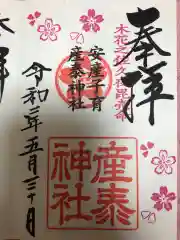 奉拝
木花之佐久夜毘売命
安産子育
産泰神社
産泰神社
令和三年五月三十日